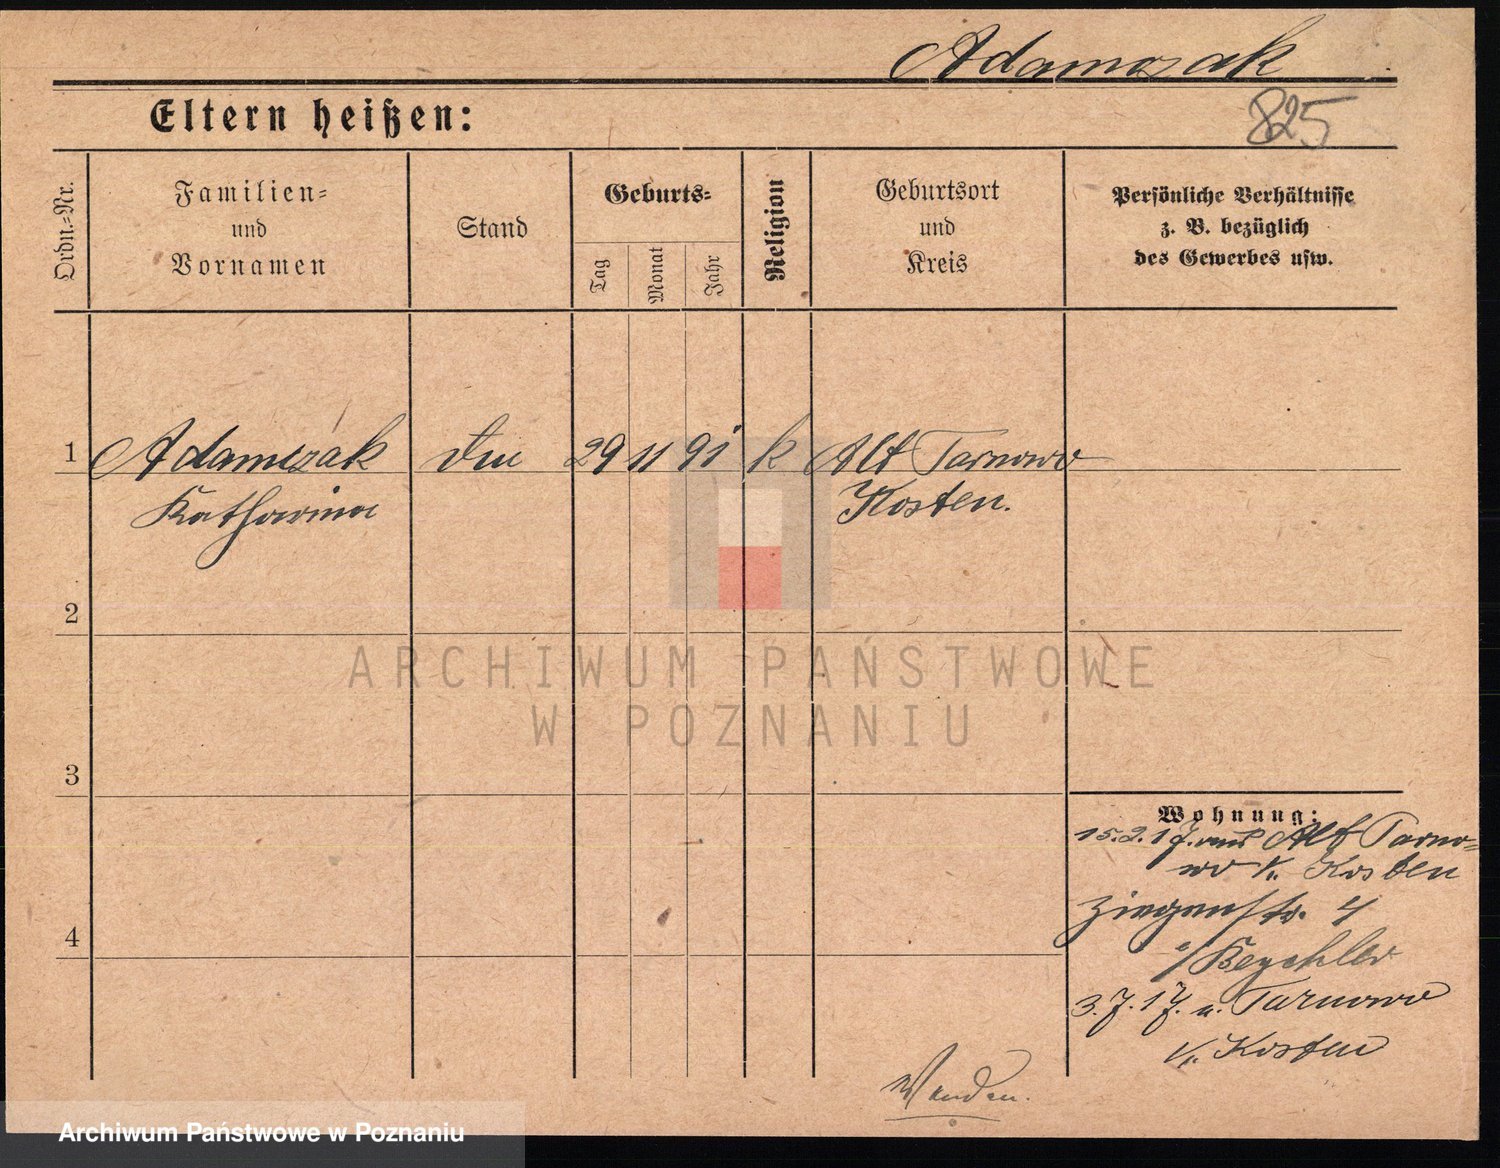 Adamczak
Eltern heißen:
825
Ordn.=Nr.
Familien=
und
Vornamen
Stand
Geburts=
Tag
Monat
Jahr
Religion
Geburtsort
und
Kreis
Persönliche Verhältnisse
z. B. bezüglich
des Gewerbes usw.
1 Adamczak 29 11 91 k Alt Tarnowo
Katharina Kosten.
2
ARCHIWUM PAŃSTWOWE
W POZNANIU
3
Wohnung:
15.2.17. aus Alt Tarno=
wo K. Kosten
Ziegenstr. 4
4
3.7.17. n. Tarnowo
K. Kosten
Wenden.
Archiwum Państwowe w Poznaniu